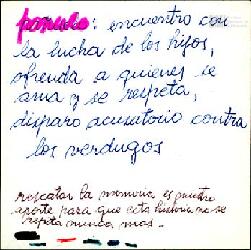 pañuelo: encuentro con
la lucha de los hijos,
ofrenda a quienes se
ama y se respeta,
disparo acusatorio contra
los verdugos
rescatar la memoria es nuestro
aporte para que esta historia no se
repita nunca más..